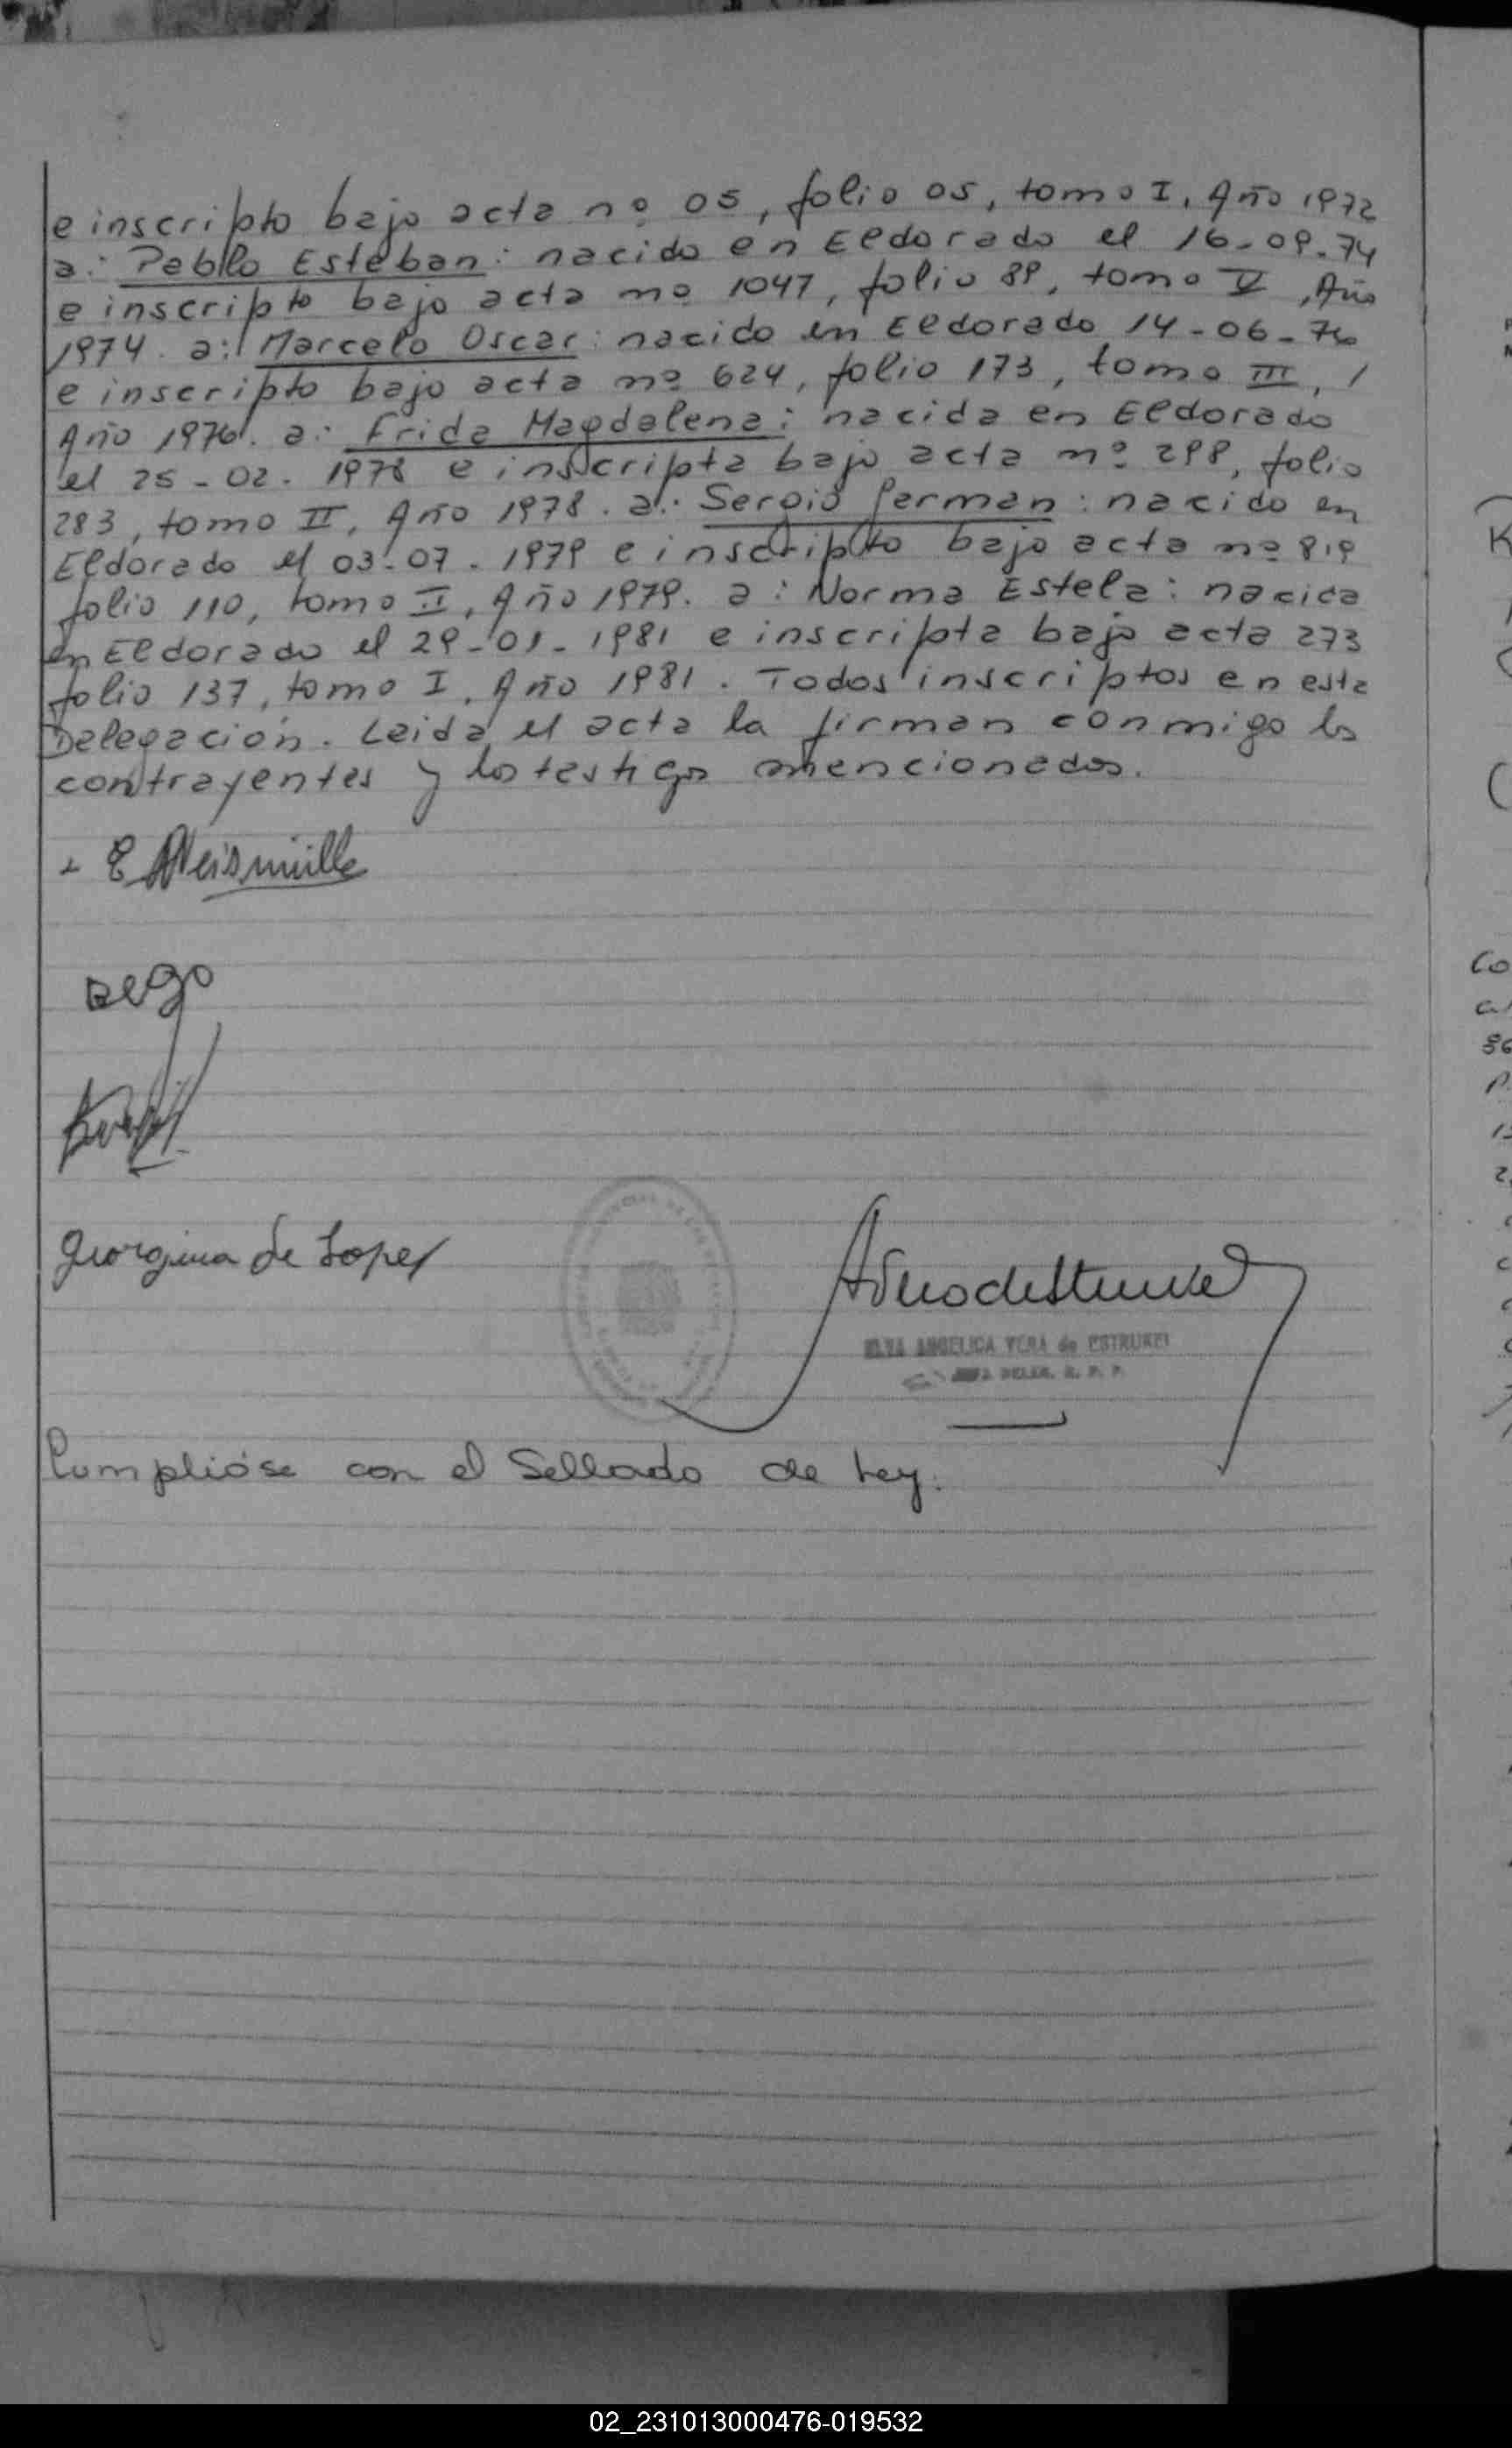 e inscripto bajo acta nº 05, folio 05, tomo I, Año 1972
a: Pablo Esteban: nacido en Eldorado el 16-09-74
e inscripto bajo acta nº 1047, folio 89, tomo V, Año
1974. a: Marcelo Oscar: nacido en Eldorado 14-06-76
e inscripto bajo acta nº 624, folio 173, tomo III, /
Año 1976. a: Frida Magdalena: nacida en Eldorado
el 25-02-1978 e inscripta bajo acta nº 298, folio
283, tomo II, Año 1978. a: Sergio German: nacido en
Eldorado el 03-07-1979 e inscripto bajo acta nº 819
folio 110, tomo II, Año 1979. a: Norma Estela: nacida
en Eldorado el 29-01-1981 e inscripta bajo acta 273
folio 137, tomo I, Año 1981. Todos inscriptos en esta
Delegación. Leida el acta la firman conmigo los
contrayentes y los testigos mencionados.
Georgina de Lopez
ELVA ANGELICA VERA de ESTRUKEI
JEFA DELEG. R. P. P.
Cumplióse con el Sellado de Ley.
02_231013000476-019532